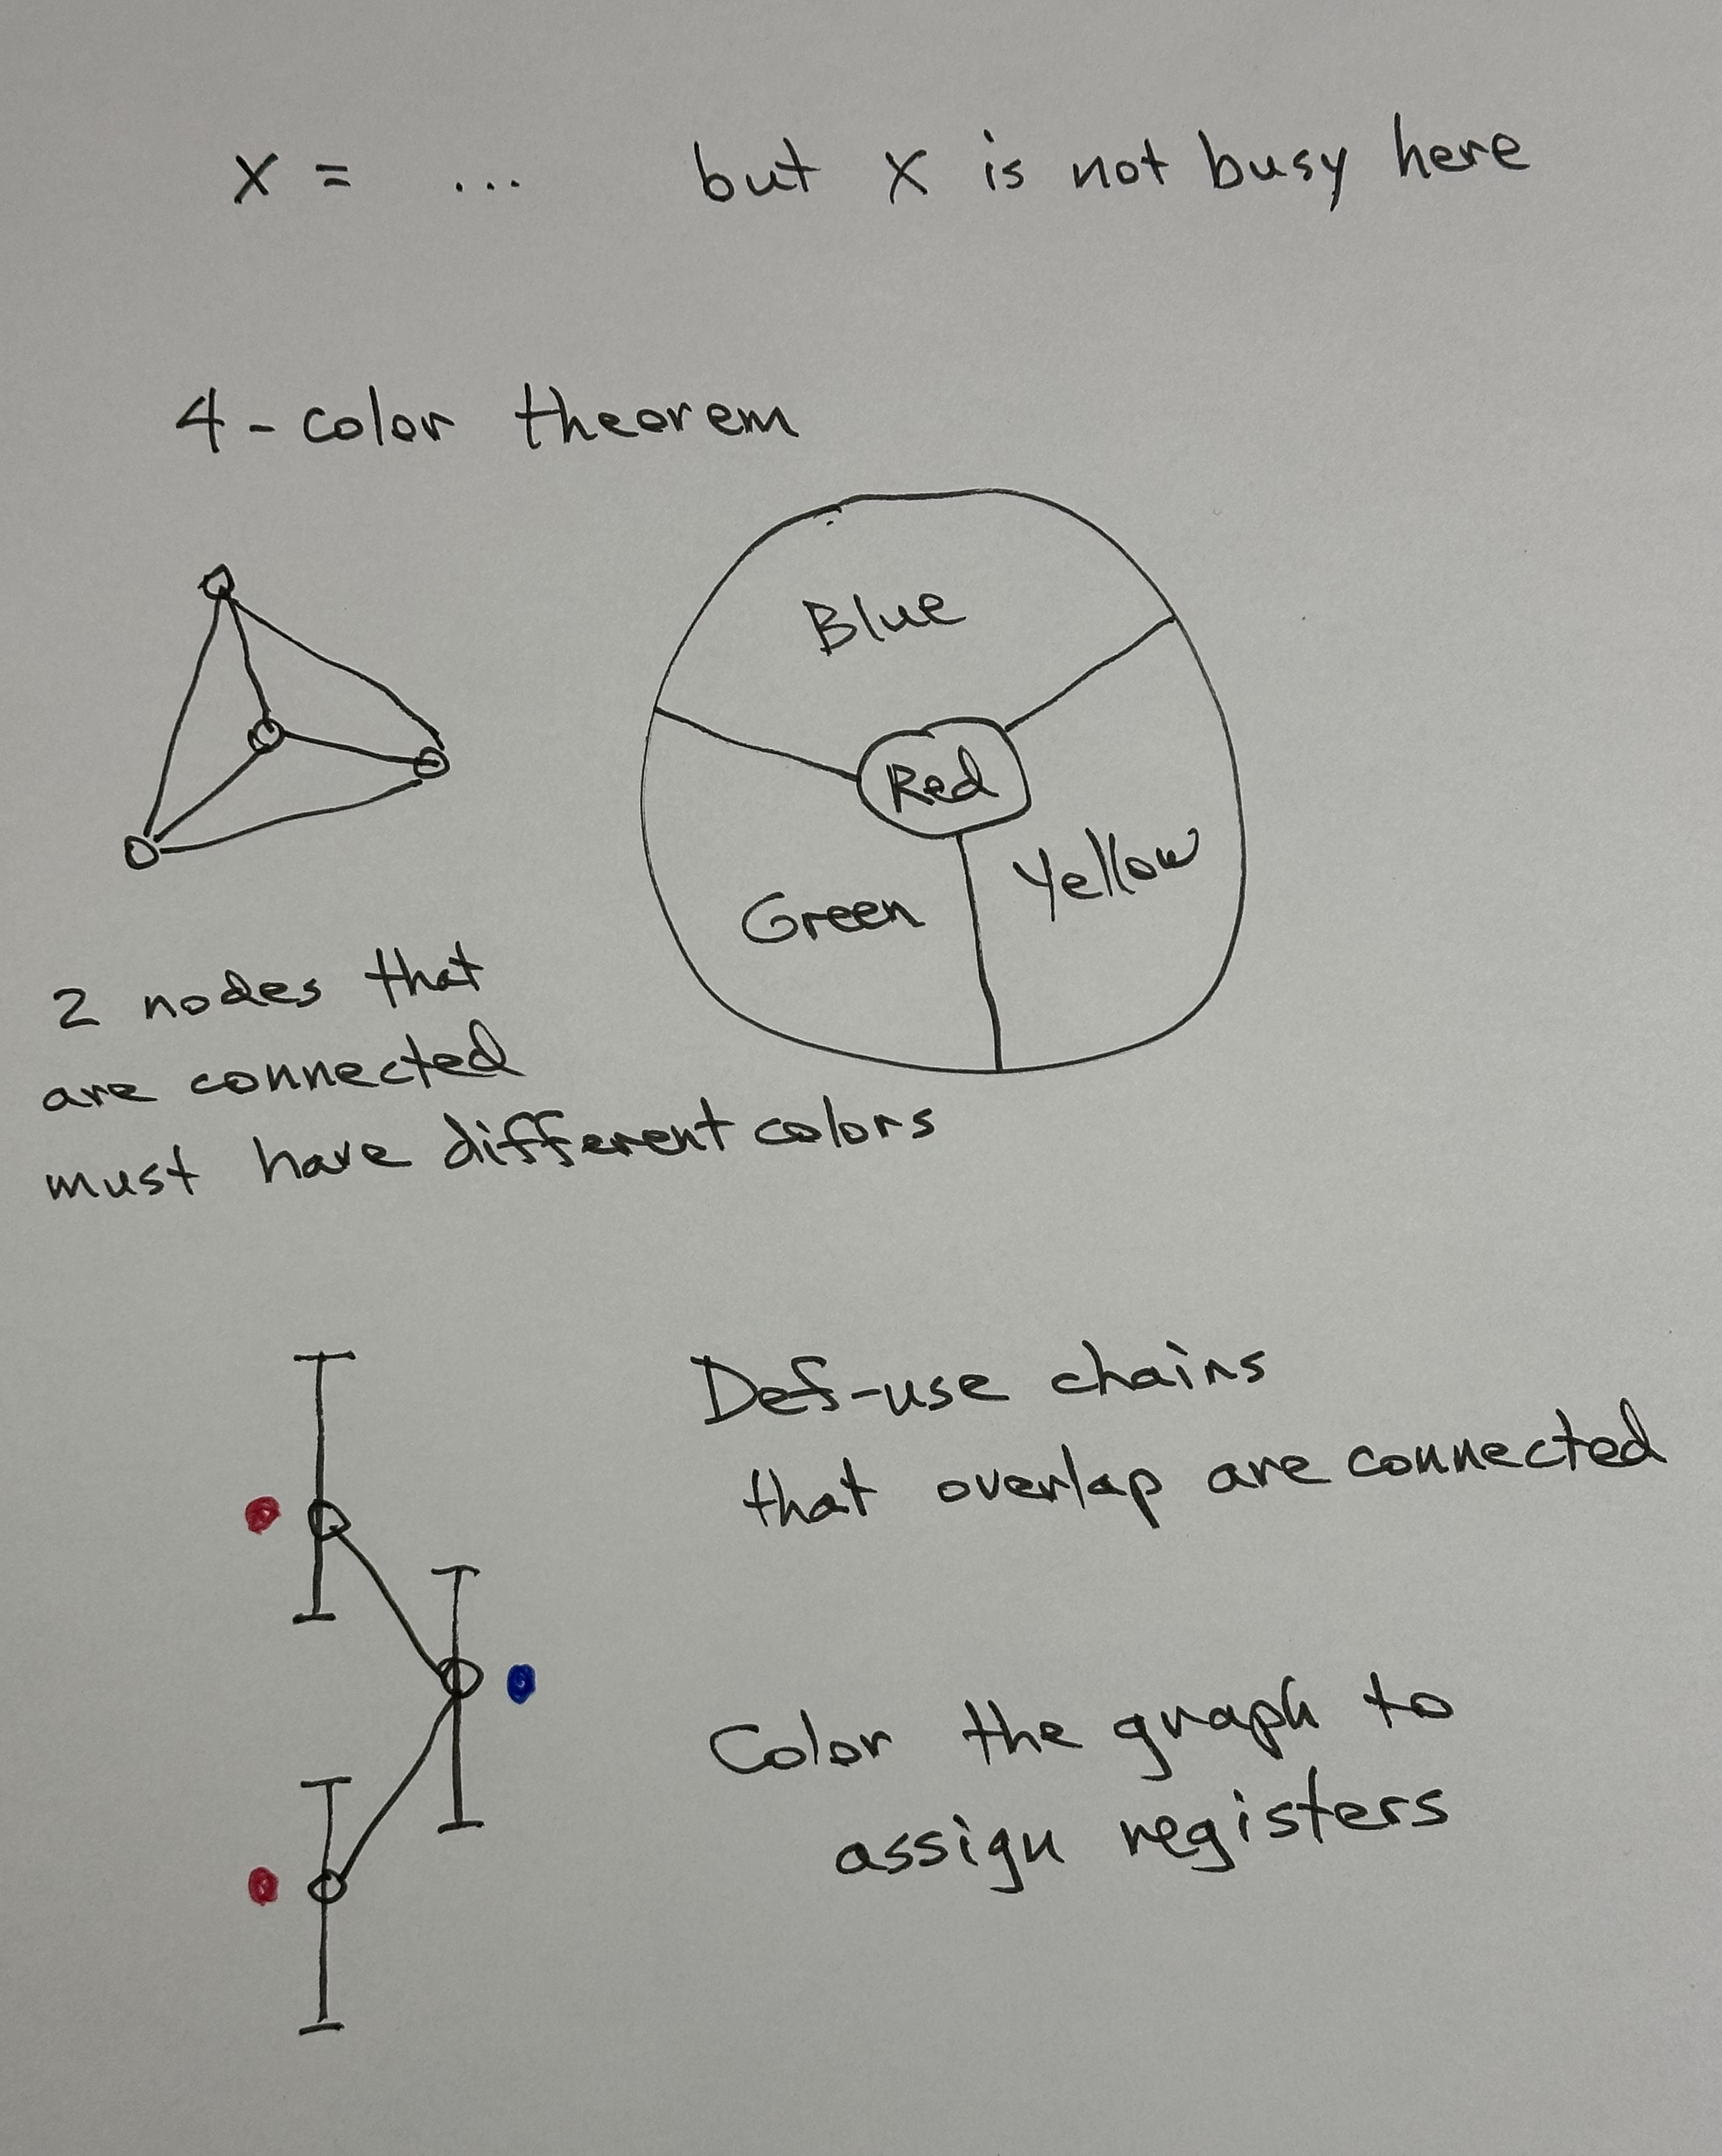 x = ... but x is not busy here
4-color theorem
Blue
Red
Yellow
Green
2 nodes that
are connected
must have different colors
Def-use chains
that overlap are connected
Color the graph to
assign registers